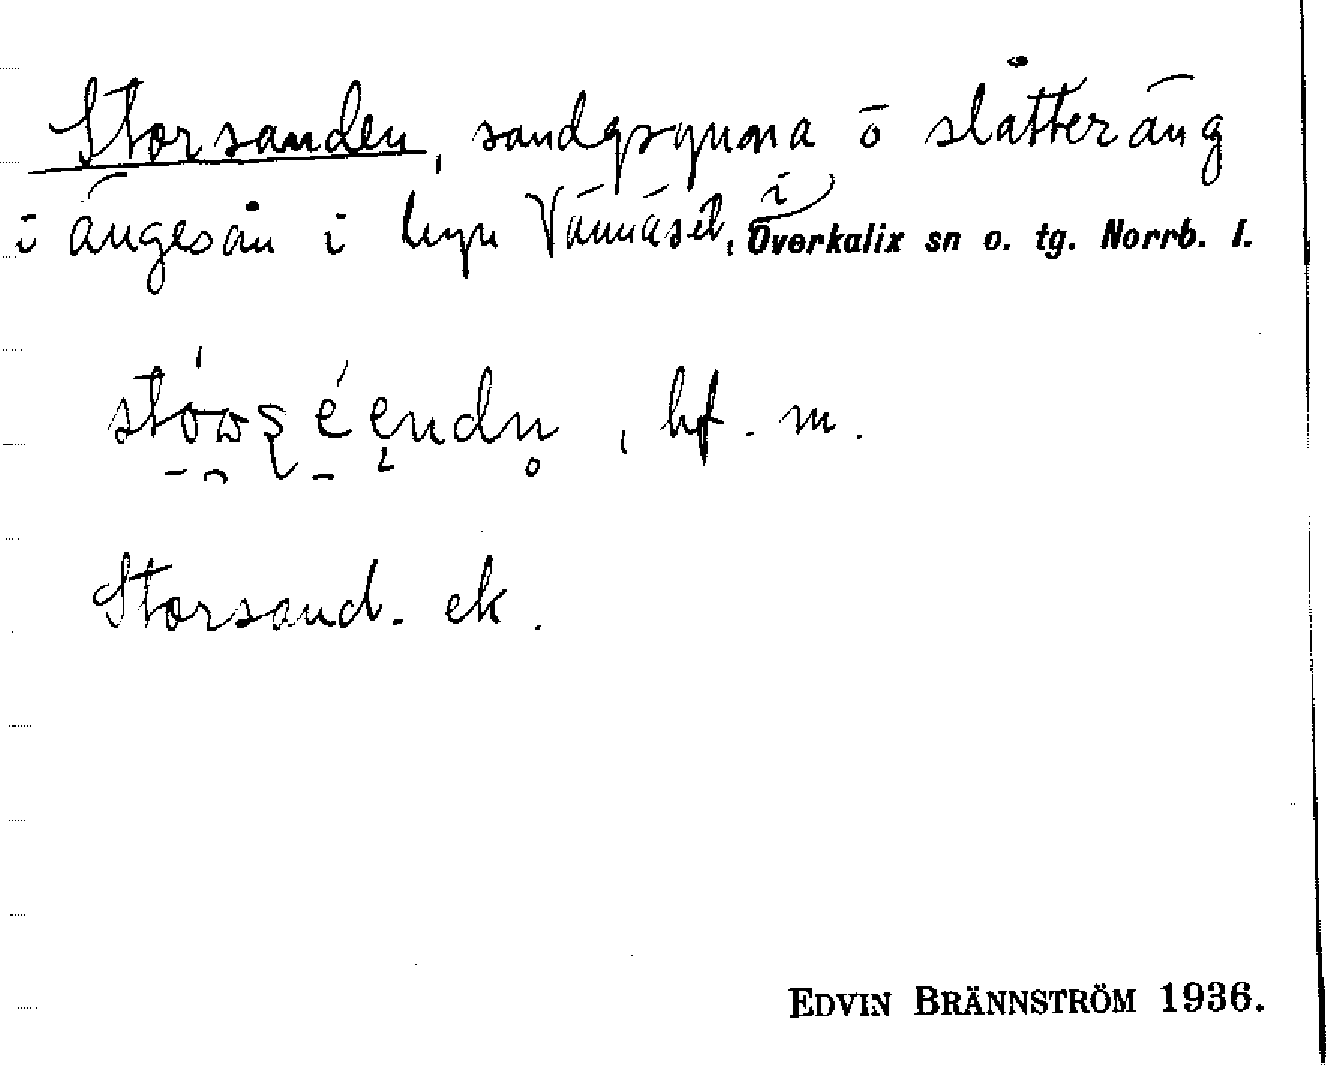 Storsanden, sandgrynna o slåtteräng
i ängesån i byn Vännäsel, i Överkalix sn o. tg. Norrb. l.
bf. m.
Storsand. ek.
EDVIN BRÄNNSTRÖM 1936.